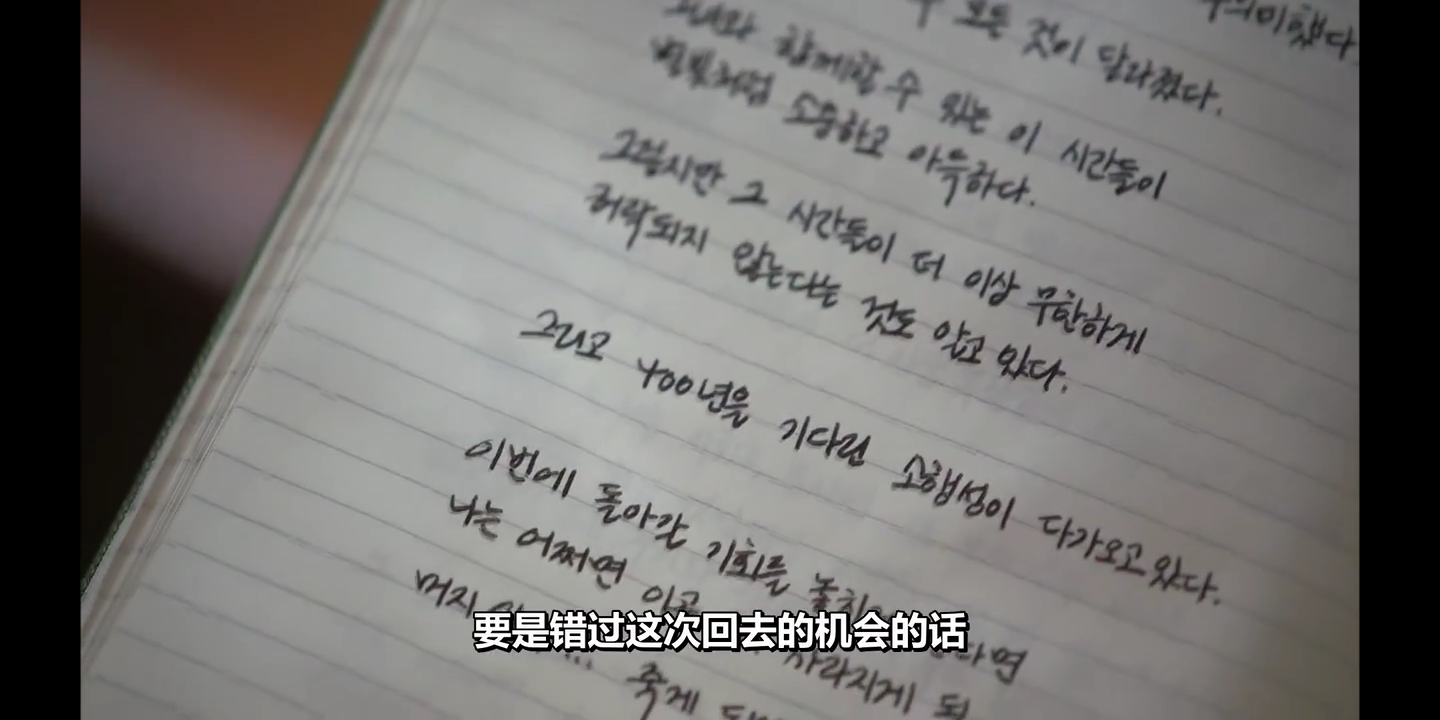 무의미했다.
모든 것이 달라졌다.
그녀와 함께할 수 있는 이 시간들이
별빛처럼 소중하고 아득하다.
그렇지만 그 시간들이 더 이상 무한하게
허락되지 않는다는 것도 알고 있다.
그리고 400년을 기다린 소행성이 다가오고 있다.
이번에 돌아갈 기회를 놓치
나는 어쩌면 이곳 사라지게 되
머지않 죽게
要是错过这次回去的机会的话